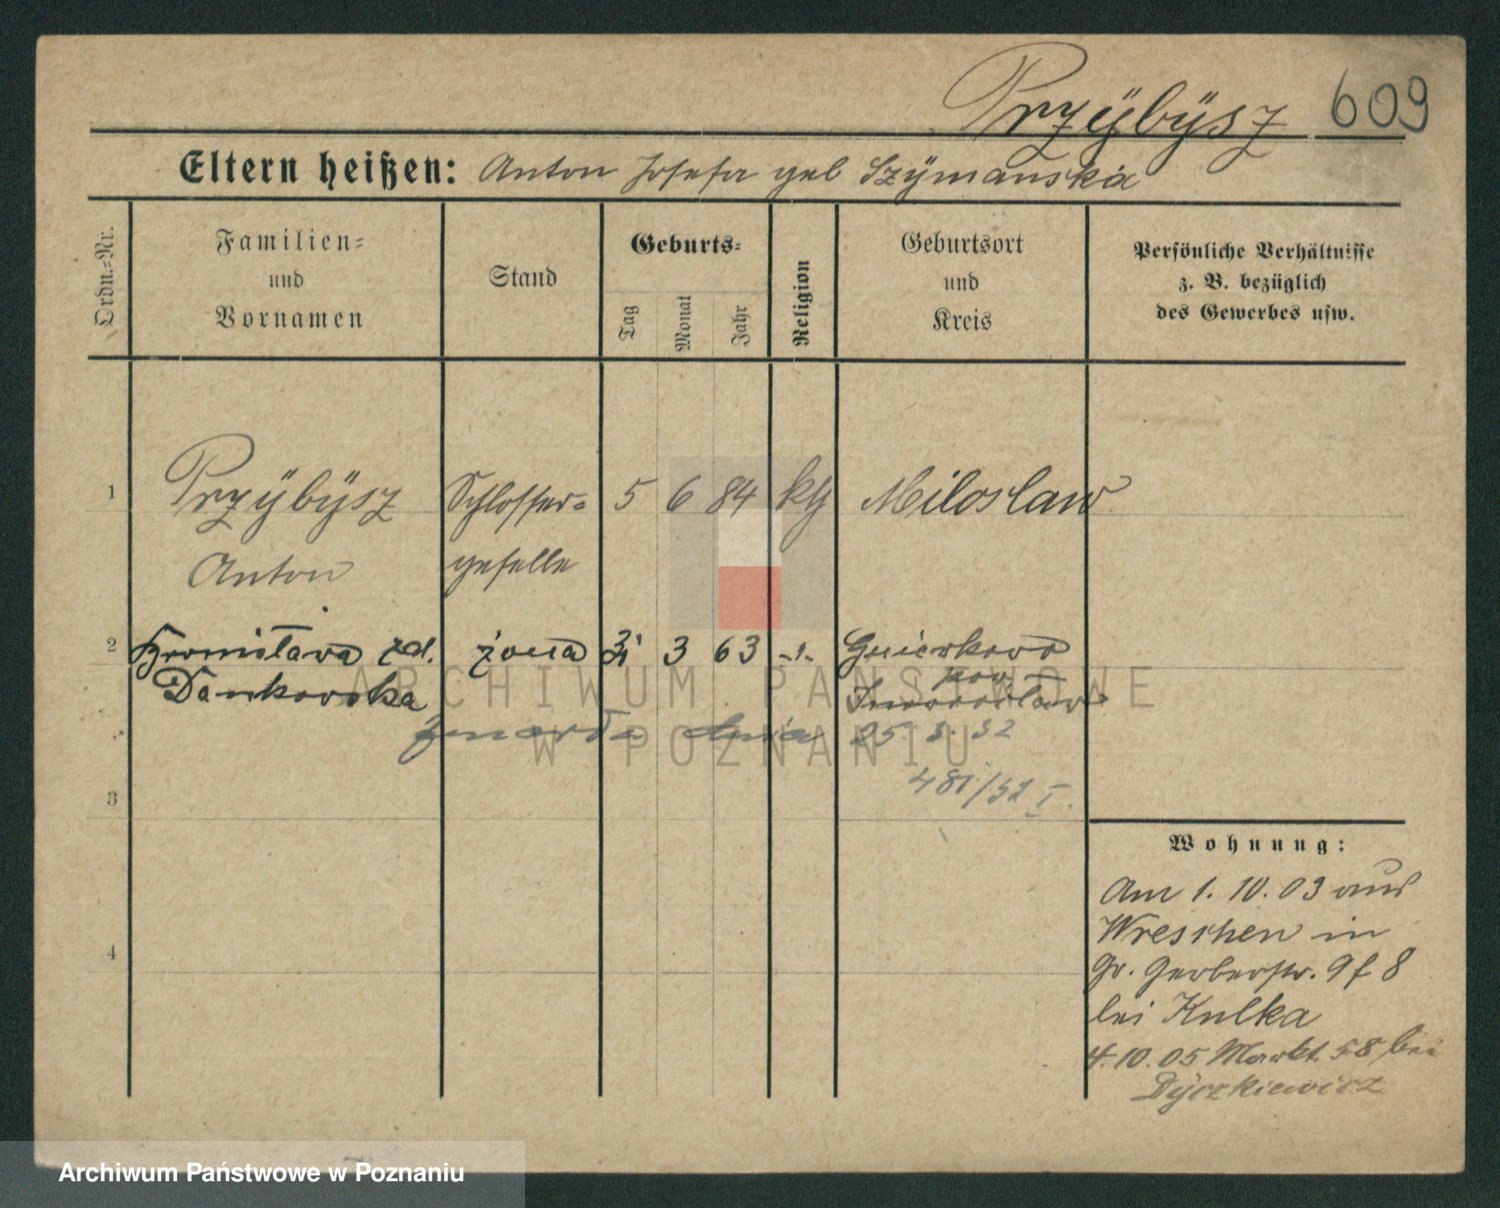 Przÿbÿsz 609
Eltern heißen: Anton Josefa geb Szÿmanska
Ordn.-Nr.
Familien-
und
Vornamen
Stand
Geburts-
Tag
Monat
Jahr
Religion
Geburtsort
und
Kreis
Persönliche Verhältnisse
z. B. bezüglich
des Gewerbes usw.
1 Przÿbÿsz Schlosser- 5 6 84 kth Miloslaw
Anton geselle
2 Bronisława zd. żona 3 63 -"- Gniewkowo
Dankowska pow. Inowrocław
zmarła dnia 25. 3. 32
481/32 I.
3
4
Wohnung:
Am 1. 10. 03 aus
Wreschen in
Gr. Gerberstr. 9 f 8
bei Kulka
4. 10. 05 Markt 58 bei
Dÿczkiewicz
ARCHIWUM PAŃSTWOWE
W POZNANIU
Archiwum Państwowe w Poznaniu